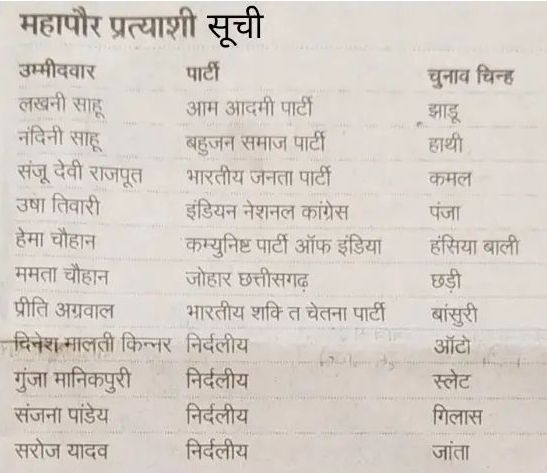 महापौर प्रत्याशी सूची
उम्मीदवार पार्टी चुनाव चिन्ह
लखनी साहू आम आदमी पार्टी झाडू
नंदिनी साहू बहुजन समाज पार्टी हाथी
संजू देवी राजपूत भारतीय जनता पार्टी कमल
उषा तिवारी इंडियन नेशनल कांग्रेस पंजा
हेमा चौहान कम्युनिष्ट पार्टी ऑफ इंडिया हंसिया बाली
ममता चौहान जोहार छत्तीसगढ़ छड़ी
प्रीति अग्रवाल भारतीय शक्ति त चेतना पार्टी बांसुरी
दिनेश मालती किन्नर निर्दलीय ऑटो
गुंजा मानिकपुरी निर्दलीय स्लेट
संजना पांडेय निर्दलीय गिलास
सरोज यादव निर्दलीय जांता